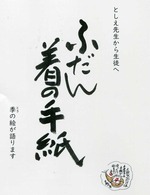 としえ先生から生徒へ
ふだん
着の手紙
季の絵が語ります